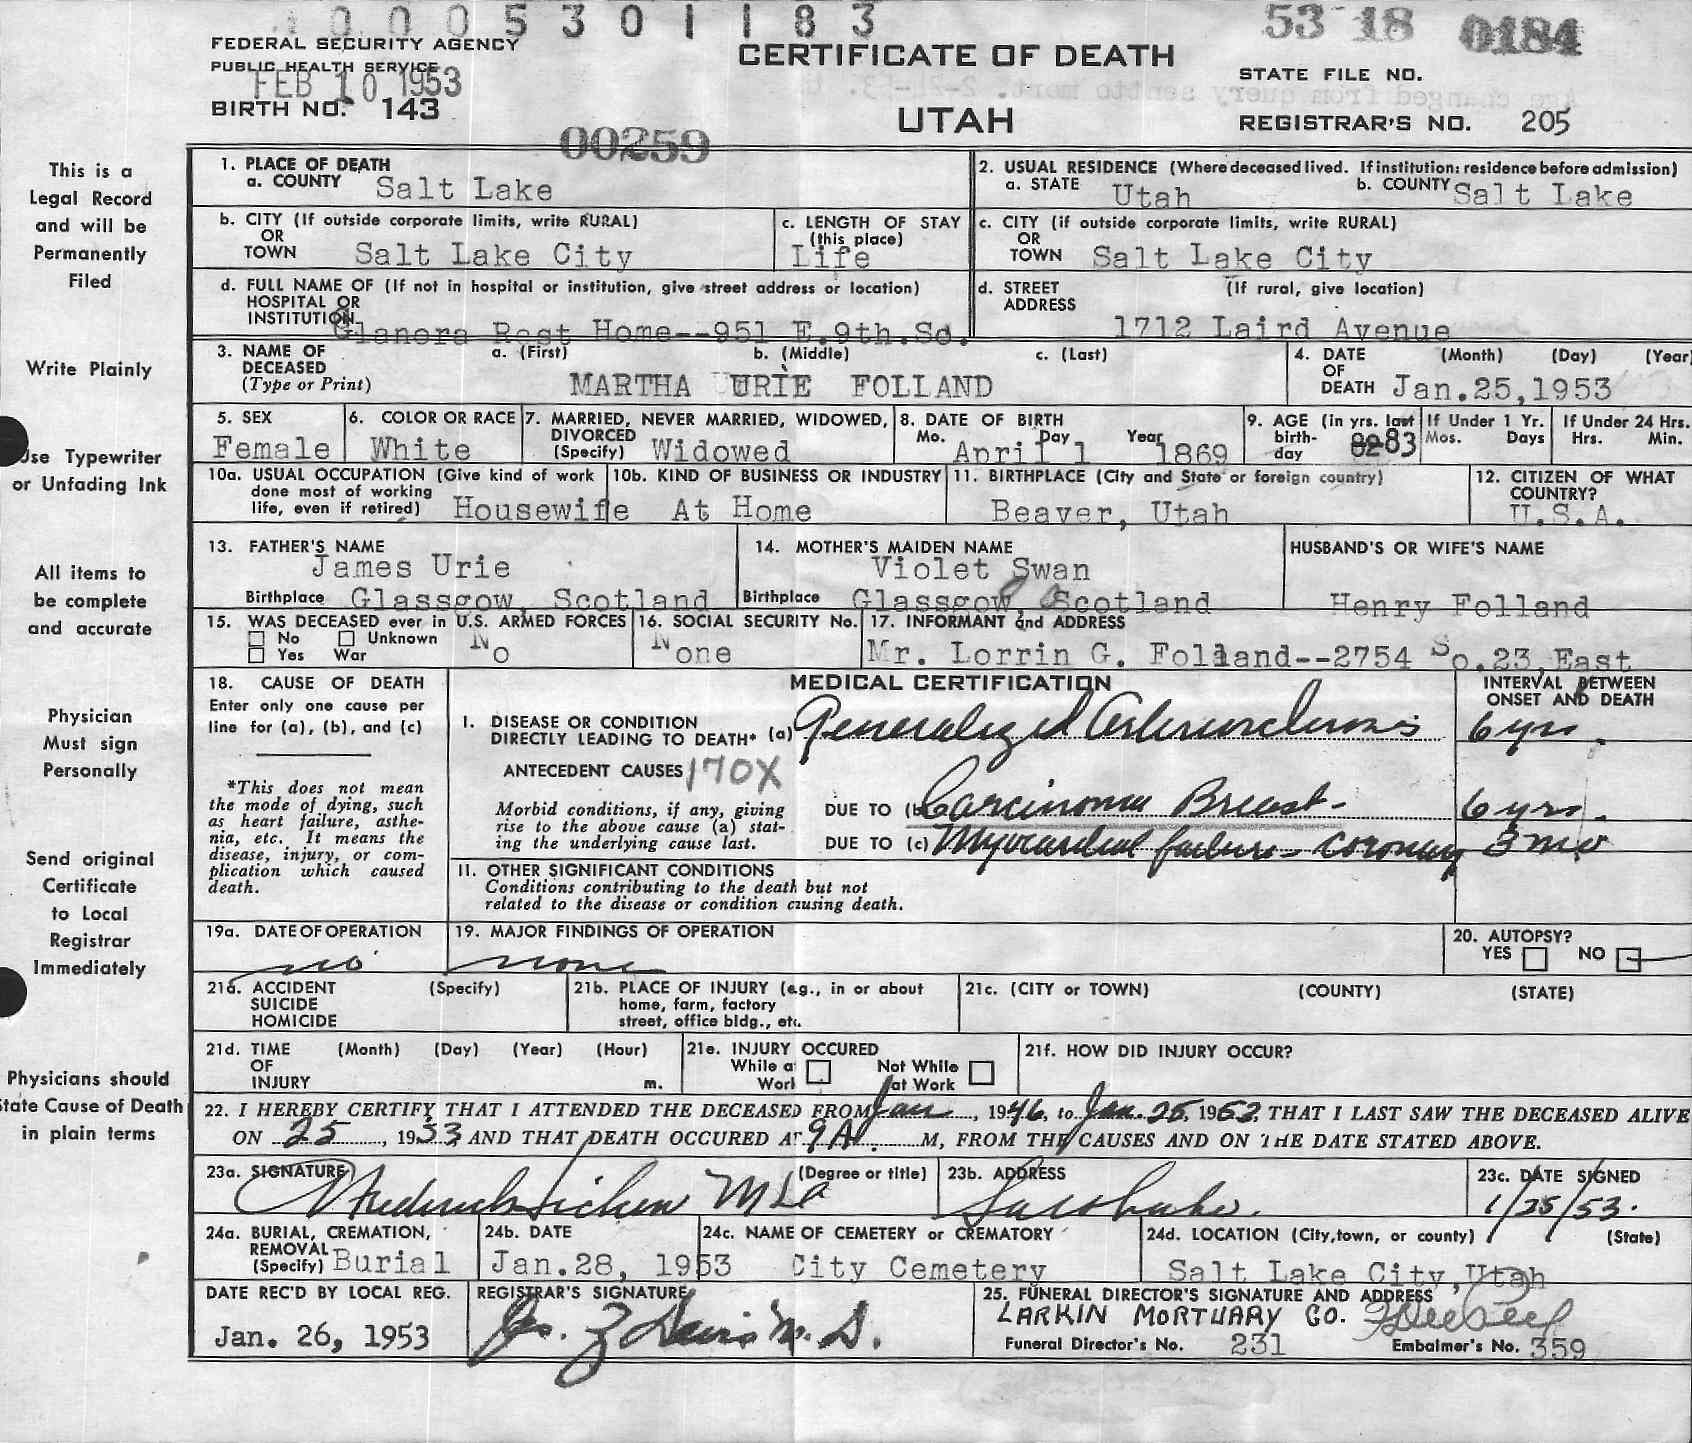 0005301183
53 18 0184
FEDERAL SECURITY AGENCY
PUBLIC HEALTH SERVICE
FEB 10 1953
BIRTH NO. 143
CERTIFICATE OF DEATH
UTAH
STATE FILE NO.
REGISTRAR'S NO. 205
00259
This is a
Legal Record
and will be
Permanently
Filed
Write Plainly
Use Typewriter
or Unfading Ink
All items to
be complete
and accurate
Physician
Must sign
Personally
Send original
Certificate
to Local
Registrar
Immediately
Physicians should
State Cause of Death
in plain terms
1. PLACE OF DEATH
a. COUNTY Salt Lake
2. USUAL RESIDENCE (Where deceased lived. If institution: residence before admission)
a. STATE Utah b. COUNTY Salt Lake
b. CITY (If outside corporate limits, write RURAL)
OR
TOWN Salt Lake City
c. LENGTH OF STAY
(this place)
Life
c. CITY (if outside corporate limits, write RURAL)
OR
TOWN Salt Lake City
d. FULL NAME OF (If not in hospital or institution, give street address or location)
HOSPITAL OR
INSTITUTION
Glanora Rest Home--951 E.9th.So.
d. STREET (If rural, give location)
ADDRESS
1712 Laird Avenue
3. NAME OF a. (First) b. (Middle) c. (Last)
DECEASED
(Type or Print) MARTHA URIE FOLLAND
4. DATE (Month) (Day) (Year)
OF
DEATH Jan.25,1953
5. SEX
Female
6. COLOR OR RACE
White
7. MARRIED, NEVER MARRIED, WIDOWED,
DIVORCED
(Specify) Widowed
8. DATE OF BIRTH
Mo. Day Year
April 1 1869
9. AGE (in yrs. last
birth-
day 83
If Under 1 Yr.
Mos. Days
If Under 24 Hrs.
Hrs. Min.
10a. USUAL OCCUPATION (Give kind of work
done most of working
life, even if retired) Housewife
10b. KIND OF BUSINESS OR INDUSTRY
At Home
11. BIRTHPLACE (City and State or foreign country)
Beaver, Utah
12. CITIZEN OF WHAT
COUNTRY?
U.S.A.
13. FATHER'S NAME
James Urie
Birthplace Glassgow, Scotland
14. MOTHER'S MAIDEN NAME
Violet Swan
Birthplace Glassgow, Scotland
HUSBAND'S OR WIFE'S NAME
Henry Folland
15. WAS DECEASED ever in U.S. ARMED FORCES
No Unknown
Yes War
No
16. SOCIAL SECURITY No.
None
17. INFORMANT and ADDRESS
Mr. Lorrin G. Folland--2754 So.23,East
18. CAUSE OF DEATH
Enter only one cause per
line for (a), (b), and (c)
*This does not mean
the mode of dying, such
as heart failure, asthe-
nia, etc. It means the
disease, injury, or com-
plication which caused
death.
MEDICAL CERTIFICATION
INTERVAL BETWEEN
ONSET AND DEATH
I. DISEASE OR CONDITION
DIRECTLY LEADING TO DEATH* (a) Generalized Arteriosclerosis 6 yrs.
ANTECEDENT CAUSES 170X
Morbid conditions, if any, giving
rise to the above cause (a) stat-
ing the underlying cause last.
DUE TO (b) Carcinoma Breast- 6 yrs.
DUE TO (c) Myocardial failure - coronary 3 mo
II. OTHER SIGNIFICANT CONDITIONS
Conditions contributing to the death but not
related to the disease or condition causing death.
19a. DATE OF OPERATION
no
19. MAJOR FINDINGS OF OPERATION
none
20. AUTOPSY?
YES NO
21a. ACCIDENT (Specify)
SUICIDE
HOMICIDE
21b. PLACE OF INJURY (e.g., in or about
home, farm, factory
street, office bldg., etc.
21c. (CITY or TOWN) (COUNTY) (STATE)
21d. TIME (Month) (Day) (Year) (Hour)
OF
INJURY m.
21e. INJURY OCCURED
While at Not While
Work at Work
21f. HOW DID INJURY OCCUR?
22. I HEREBY CERTIFY THAT I ATTENDED THE DECEASED FROM Jan, 1946, to Jan. 25, 1953, THAT I LAST SAW THE DECEASED ALIVE
ON 25, 1953 AND THAT DEATH OCCURED AT 9 A M, FROM THE CAUSES AND ON THE DATE STATED ABOVE.
23a. SIGNATURE (Degree or title)
Frederick M D
23b. ADDRESS
Salt Lake.
23c. DATE SIGNED
1/25/53.
24a. BURIAL, CREMATION,
REMOVAL
(Specify) Burial
24b. DATE
Jan.28, 1953
24c. NAME OF CEMETERY or CREMATORY
City Cemetery
24d. LOCATION (City,town, or county) (State)
Salt Lake City,Utah
DATE REC'D BY LOCAL REG.
Jan. 26, 1953
REGISTRAR'S SIGNATURE
Jos. Z Davis M. D.
25. FUNERAL DIRECTOR'S SIGNATURE AND ADDRESS
LARKIN MORTUARY CO.
Funeral Director's No. 231 Embalmer's No. 359